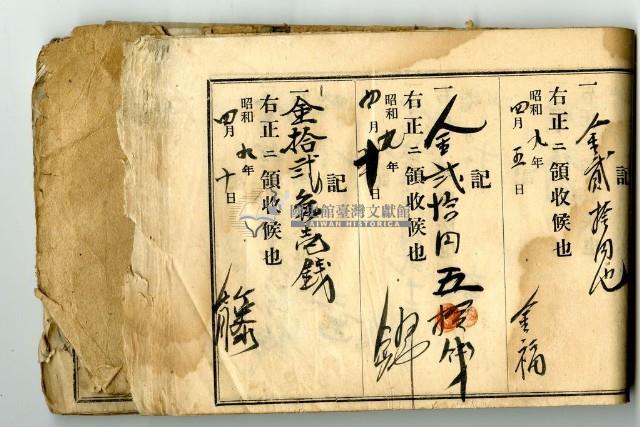 一金貳拾円也
右正ニ領收候也
昭和九年
四月五日
金福
記
一金弐拾円五拾
右正ニ領收候也
昭和九年
四月十日
記
一金拾弐円
銭
右正ニ領收候也
昭和九年
四月十日
籐
國史館臺灣文獻館
TAIWAN HISTORICA